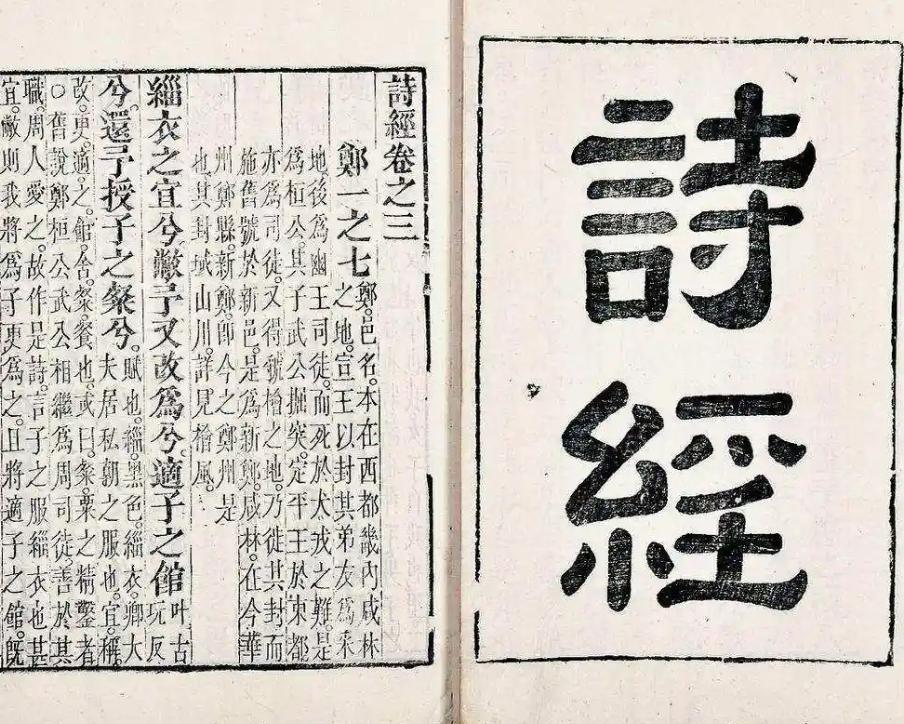 詩經
詩經卷之三
鄭一之七
鄭。邑名。本在西都畿內咸林
之地。宣王以封其弟友爲采
地後爲幽王司徒。而死於犬戎之難。是
爲桓公。其子武公掘突。定平王於東都
亦爲司徒。又得虢檜之地。乃徙其封而
施舊號於新邑。是爲新鄭。咸林。在今華
州鄭縣。新鄭。卽今之鄭州是
也。其封域山川。詳見檜風。
緇衣之宜兮。敝予又改爲兮。適子之館
叶古
玩反
兮。還予授子之粲兮。
賦也。緇。黑色。緇衣。卿大
夫居私朝之服也。宜。稱。
改。更。適。之。館。舍。粲。餐也。或曰。粲。粟之精鑿者
○舊說鄭桓公武公相繼爲周司徒善於其
職。周人愛之。故作是詩。言子之服緇衣也甚
宜。敝則我將爲子更爲之。且將適子之館。旣